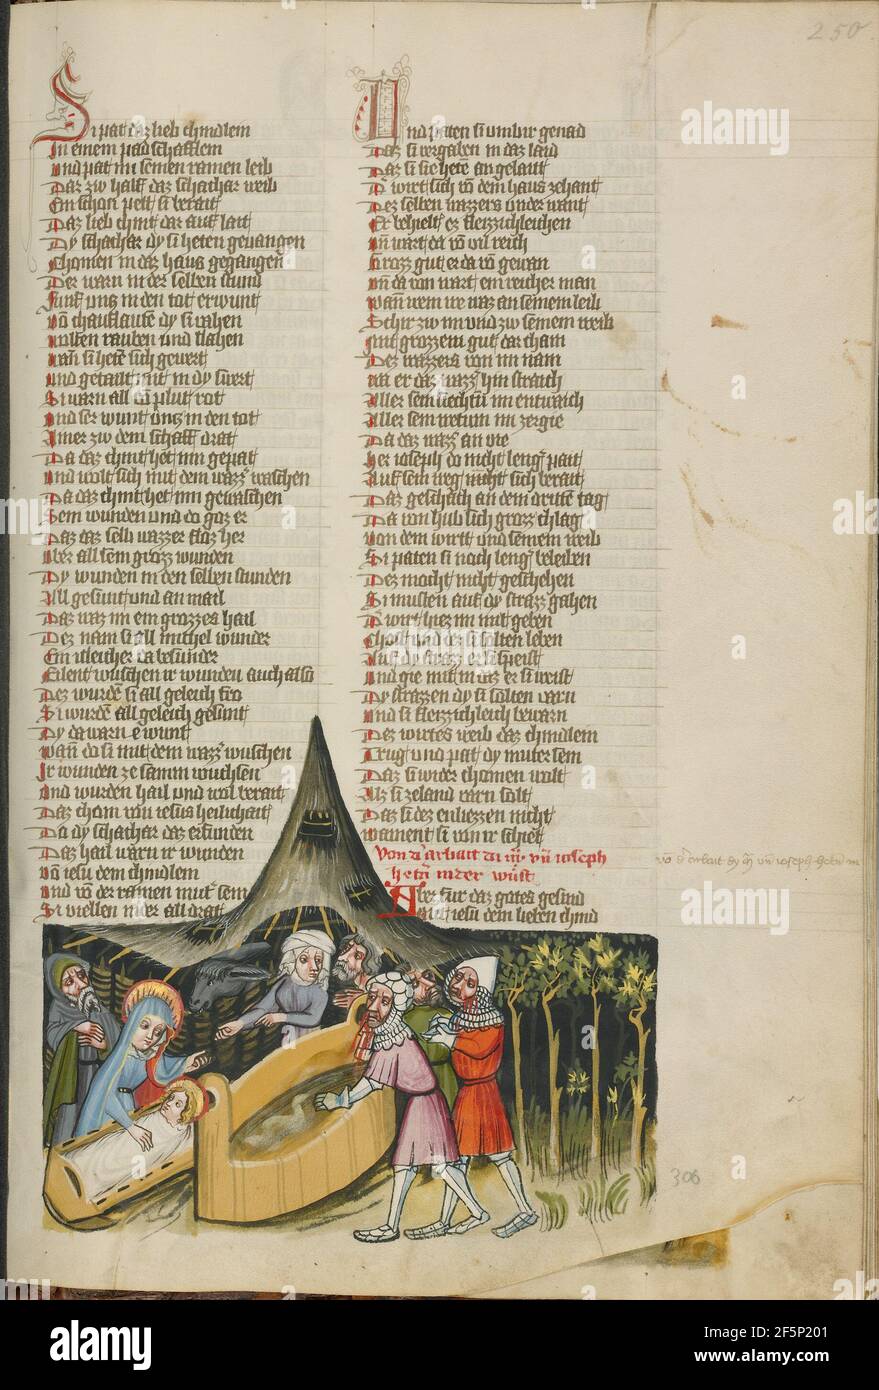 250
Si pat daz lieb chindlein
In einem pad schafflein
Und pat mi seinen ramen leib
Daz zw half daz schachar weib
Ein schon pett si berait
Daz lieb chint dar auff lait
Dy schachar dy si heten gevangen
Chomen in daz haus gegangen
Der warn in der selben stund
Funf untz in den tot erwunt
Von chauflauten dy si sahen
Wolten rauben und slahen
Wan si heten sich gewert
Und getailt mit in dy swert
Si warn all von plut rot
Und ser wunt untz in den tot
Ainer zw dem schaff drat
Da daz chint het inn gepat
Und wolt sich mit dem wazzer waschen
Da daz chint het inn gewaschen
Sein wunden und do goz er
Daz daz selb wazzer floz her
Uber all sein grozz wunden
Dy wunden in den selben stunden
All gesunt und an mail
Daz waz im ein grozzes hail
Dez nam si all michel wunder
Ein itleicher da besunder
Eilent wuschen ir wunden auch also
Dez wurden si all geleich fro
Si wurden all geleich gesunt
Dy da warn e wunt
Wan do si mit dem wazzer wuschen
Ir wunden ze samm wuchsen
Und wurden hail und wol berait
Daz chom von iesus heilichait
Da dy schachar daz erfunden
Daz hail warn ir wunden
Von iesu dem chindlein
Und von der rainen muter sein
Si viellen nider all drat
Und paten si umb ir genad
Daz si vergaben in daz laid
Daz si sie heten an gelait
Der wirt sich von dem haus zehant
Dez selben wazzers under want
Er behielt ez fleizzichleichen
Und wart da von vil reich
Grozz gut er da von gewan
Und da von wart ein reicher man
Wann wem we waz an seinem leib
Schir zw im und zw seinem weib
Mit grozzem gut dar cham
Dez wazzers von im nam
Wa er daz wazzer hin straich
Aller sein siechtum im entwaich
Aller sein wetum im zergie
Da daz waz an vie
Her ioseph do nicht lenger pait
Auf sein weg nicht sich berait
Daz geschach an dem driten tag
Da von hub sich grozz chlag
Von dem wirtt und seinem weib
Si paten si noch lenger beleiben
Dez mocht nicht geschehen
Si musten auf dy strazz gahen
Der wirt hiez im mit geben
Chost und dez si solten leben
Auf dy strazz er si speist
Und gie mit in daz er si weist
Dy strazzen dy si solten varn
Und si fleizzichleich bewarn
Dez wirtes weib daz chindlein
Trug und pat dy muter sein
Daz si wider chomen wolt
Alz si zeland varn solt
Daz si dez enliezzen nicht
Wament si von ir schiet
Von der arbait di maria und ioseph
heten in der wust
Aber fur daz gutes gesind
Mit iesu dem lieben chind
306
alamy
Image ID: 2F5P201
www.alamy.com